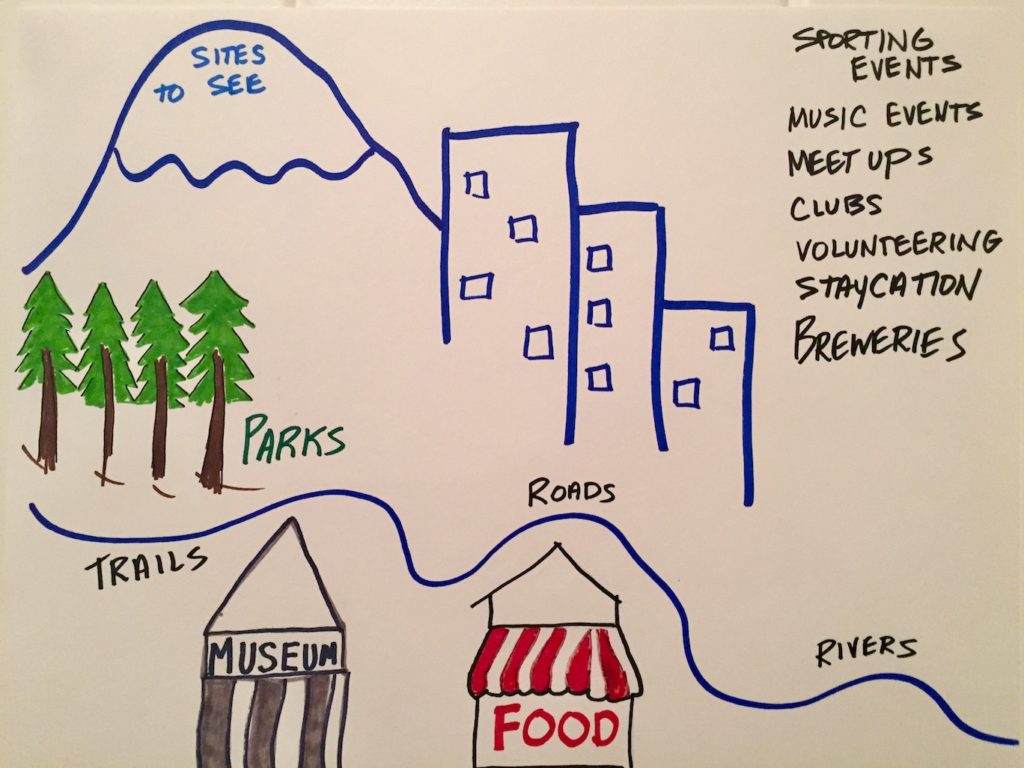 SITES
TO SEE
SPORTING
EVENTS
MUSIC EVENTS
MEET UPS
CLUBS
VOLUNTEERING
STAYCATION
BREWERIES
PARKS
ROADS
TRAILS
RIVERS
MUSEUM
FOOD